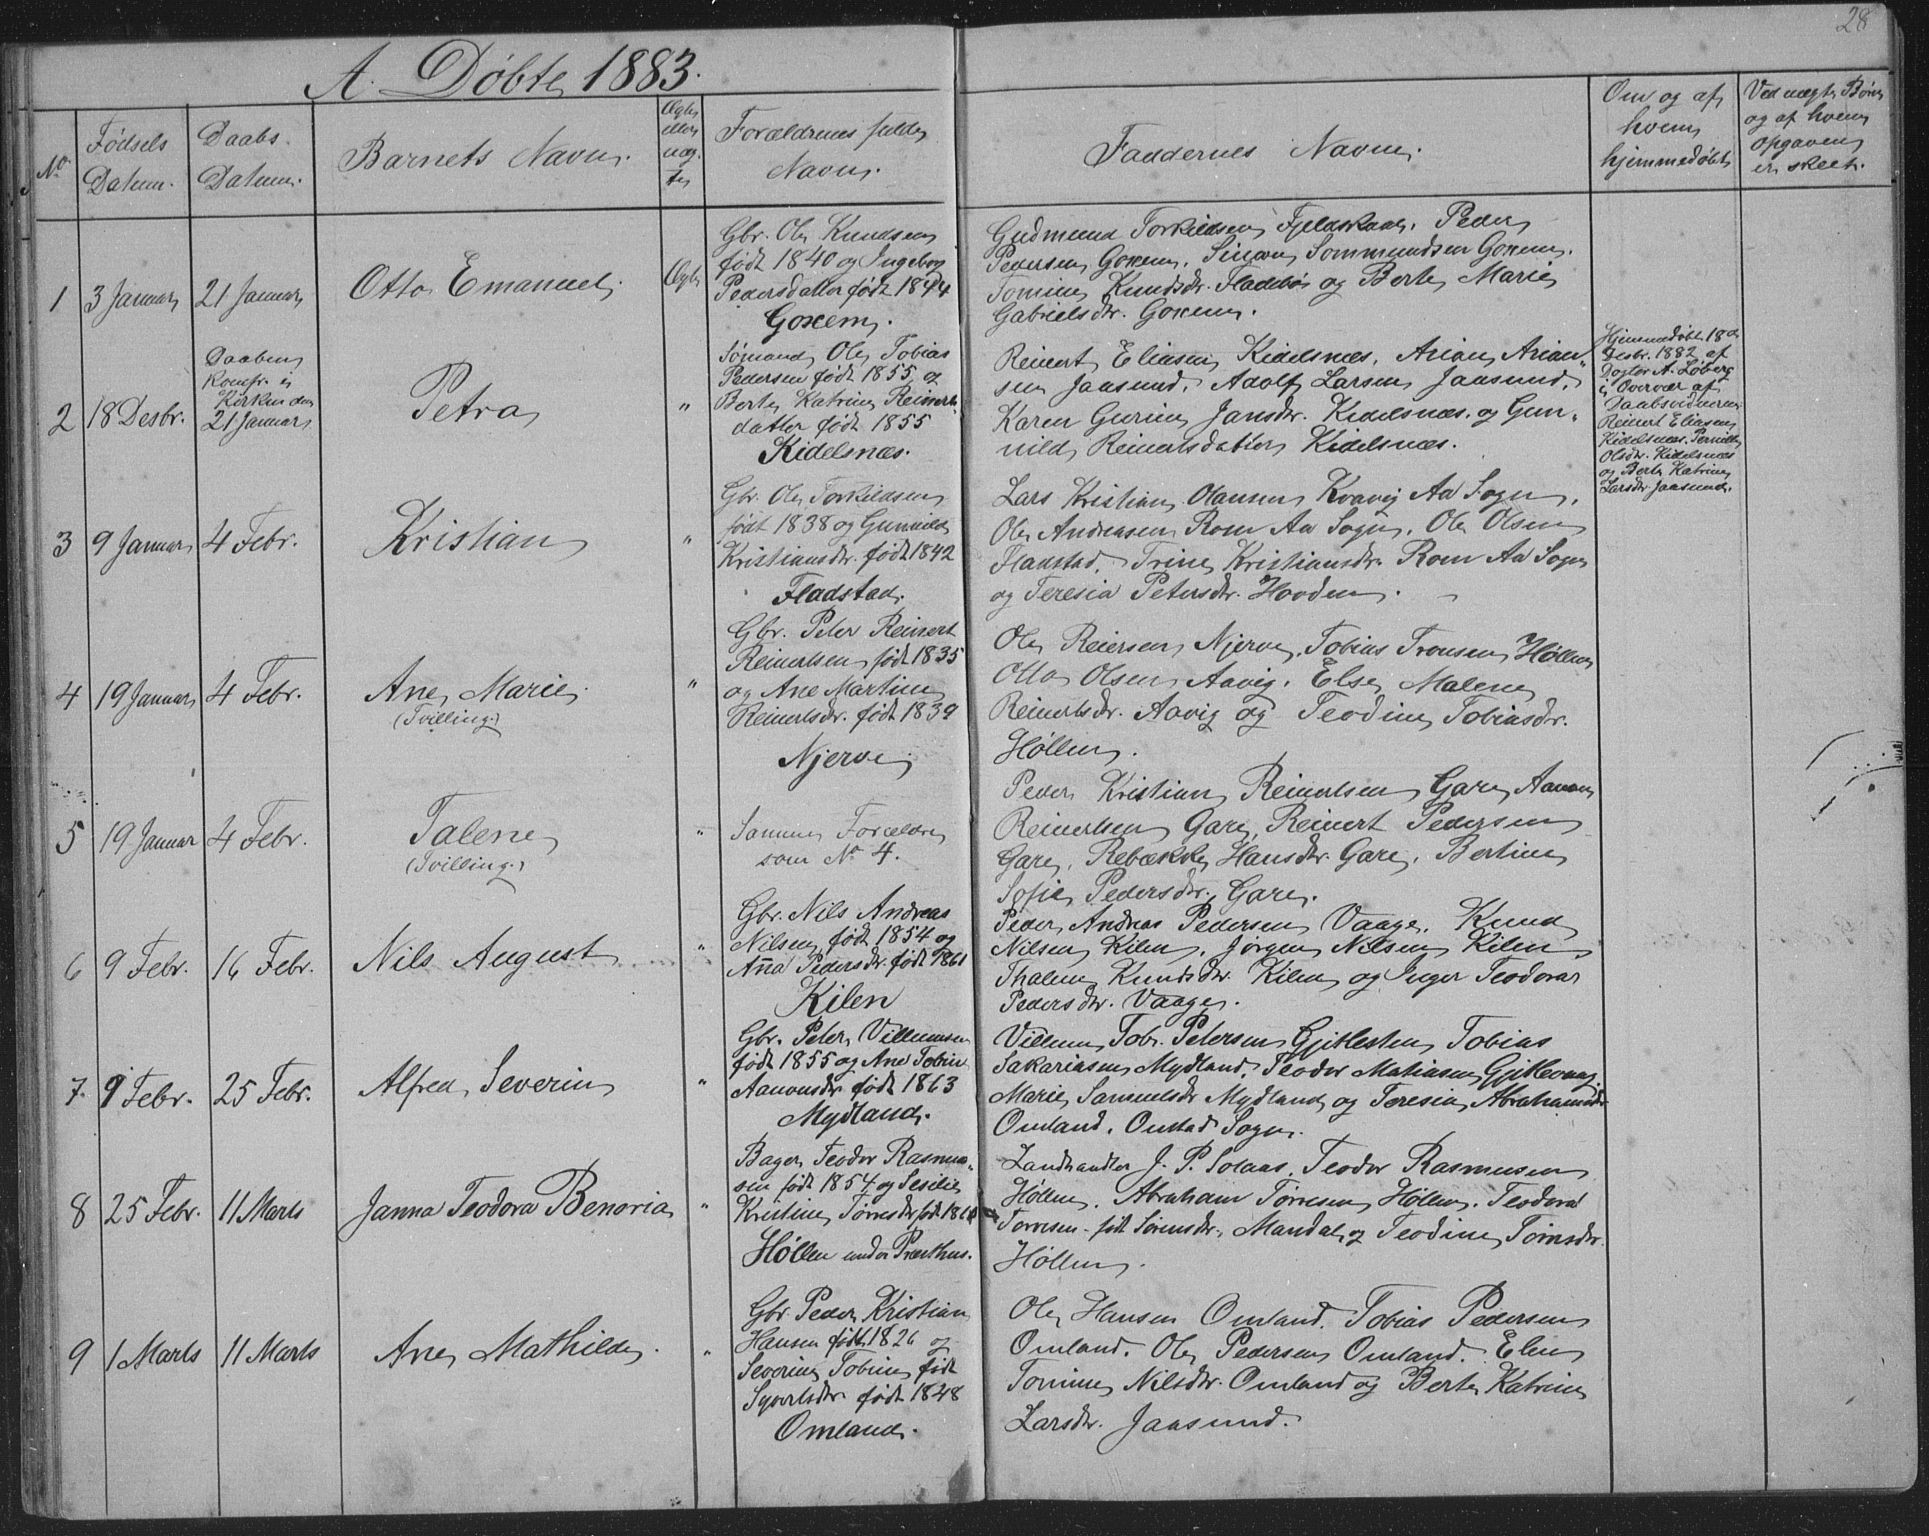 28
A. Døbte 1883.
No
Fødsels Datum.
Daabs. Datum.
Barnets Navn.
Ægte eller uæg. te
Forældrenes fulde Navn.
Faddernes Navne.
Om og af hvem hjemmedøbt
Ved uægte Børn og af hvem opgaven er skeet.
1 3 Januar 21 Januar
Otto Emanuel
Ægte
Gbr. Ole Knudsen
født 1840 og Ingeborg
Pedersdatter født 1844
Goxem.
Gudmund Torkildsen Fjeldskaar, Peder
Pedersen Goxem, Sommundsen Goxem.
Tomine Knudsdr. Fladebø og Berte Marie
Gabrielsdr. Goxem.
2 18 Desbr.
Daaben
Komfr. i
Kirken den
21 Januar
Petra
"
Sømand Ole Tobias
Pedersen født 1855 og
Berte Katrine Reinerts
datter født 1855
Kidelsnæs.
Reinert Eliasen Kidelsnæs, Arian Arian"
sen Jaasund, Adolf Larsen Jaasund,
Karen Gurine Jansdr. Kidelsnæs. og Gun"
nild Reinertsdatter Kidelsnæs.
Hjemmedøbt 18de
Desbr. 1882 af
Dogtor A. Løberg
i Overvær af
Daabsvidnerne
Reinert Eliasen
Kidelsnæs. Pernille
Olsdr. Kidelsnæs
og Berte Katrine
Larsdr. Jaasund.
3 9 Januar 4 Febr.
Kristian
"
Gbr. Ole Torkildsen
født 1838 og Gunnild
Kristiansdr. født 1842
Fladstad.
Lars Kristian Olansen Kvavig Aa Sogn,
Ole Andreasen Rom Aa Sogn, Ole Olsen
Flaastad, Trine Kristiansdr. Rom Aa Sogn
og Teresia Petersdr. Hovden.
4 19 Januar 4 Febr.
Ane Marie
(Tvilling.)
"
Gbr. Peter Reinert
Reinertsen født 1835
og Ane Martine
Reinertsdr. født 1839
Njerve
Ole Reiersen Njerve, Tobias Tronsen Høllen
Otto Olsen Aavig, Else Malene
Reinertsdr. Aavig og Teodine Tobiasdr.
Høllen.
5 19 Januar 4 Febr.
Talene
(Tvilling.)
"
Samme Forældre
som No 4.
Peder Kristian Reinertsen Gare, Aanon
Reinertsen Gare, Reinert Pedersen
Gare, Rebække Hansdr. Gare, Bertine
Sofie Pedersdr. Gare.
6 9 Febr. 16 Febr.
Nils August
"
Gbr. Nils Andreas
Nilsen født 1854 og
Anna Pedersdr. født 1861
Kilen
Peder Andreas Pedersen Vaage, Knud
Nilsen Kilen, Jørgen Nilsen Kilen,
Thalene Knudsdr. Kilen og Inger Teodora
Pedersdr. Vaage.
7. 9 Febr. 25 Febr.
Alfred Severin
"
Gbr. Peter Villumsen
født 1855 og Ane Tobine
Aanonsdr. født 1863
Mydland.
Villum Tobr. Petersen Gjitlesten Tobias
Sakariasen Mydland, Teodor Matiasen
Marie Samuelsdr Mydland og Teresia Abrahamsdr
Omland, Oustad Sogn.
8 25 Febr. 11 Marts
Janna Teodora Benoria
"
Bager Teodor Rasmus"
sen født 1854 og Sesilie
Kristine Torresdr født
Høllen under Præsthus.
Landhandler J. P. Solaas, Teodor Rasmussen
Høllen, Abraham Torresen Høllen, Teodora
Torresen født Sørensdr. Mandal, og Teodine Torresdr.
Høllen.
9 1 Marts 11 Marts
Ane Mathilde.
"
Gbr. Peder Kristian
Hansen født 1826 og
Severine Tobine født
Syvertsdr. født 1848
Omland.
Ole Hansen Omland, Tobias Pedersen
Omland, Ole Pedersen Omland, Elen
Tomine Nilsdr. Omland og Berte Katrine
Larsdr. Jaasund.